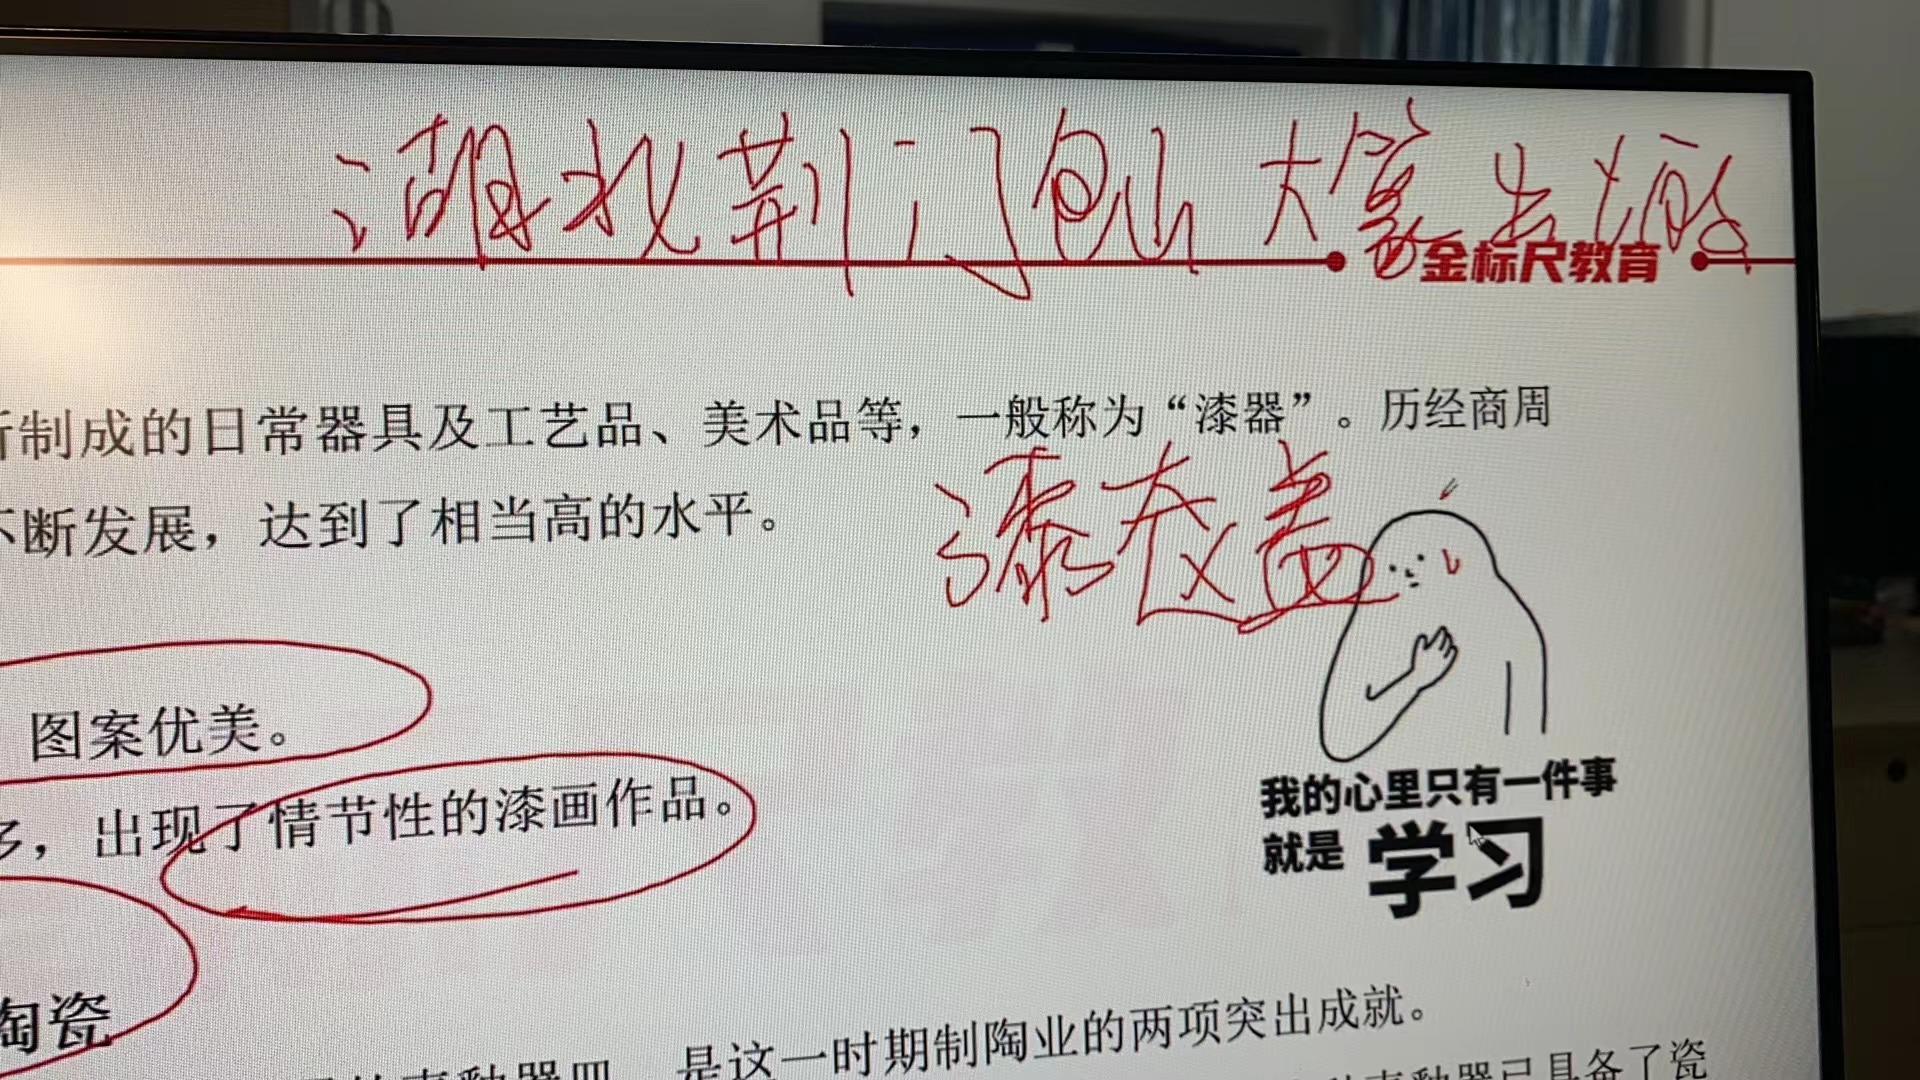 湖北荆门包山大冢出土的
金标尺教育
制成的日常器具及工艺品、美术品等，一般称为“漆器”。历经商周
不断发展，达到了相当高的水平。
漆奁盖
图案优美。
多，出现了情节性的漆画作品。
我的心里只有一件事
就是 学习
陶瓷
是这一时期制陶业的两项突出成就。
器已具备了瓷